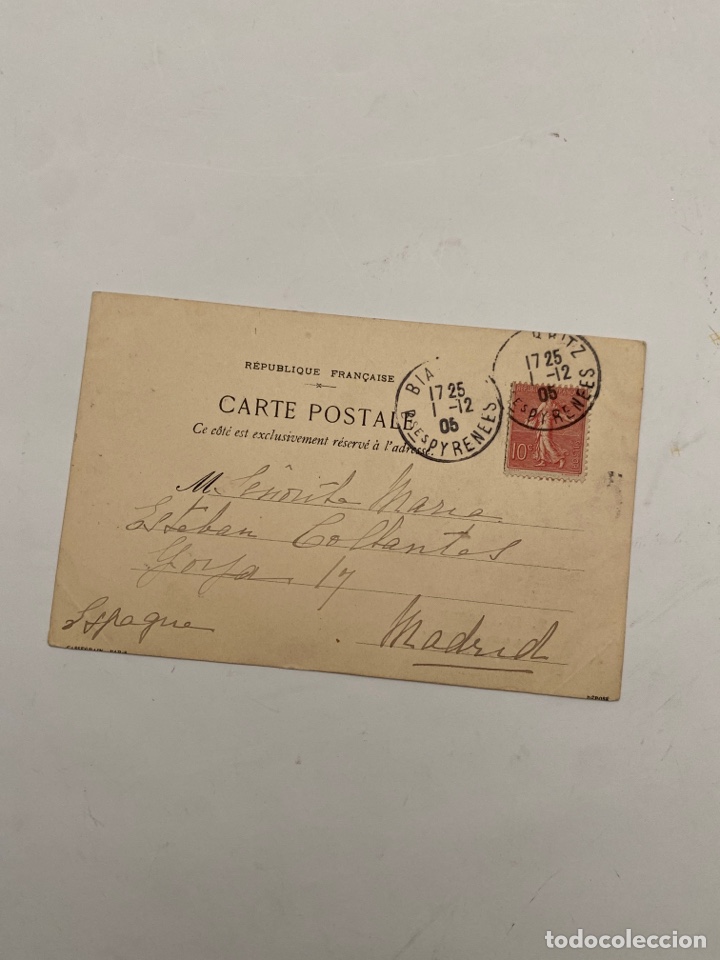 RÉPUBLIQUE FRANÇAISE
CARTE POSTALE
Ce côté est exclusivement réservé à l'adresse.
BIA
17 25
1 -12
05
BSES PYRENEES
RRITZ
17 25
1 -12
05
SES PYRENEES
10c
M Señorita Maria
Esteban Collantes
Goya 17
Espagne
Madrid
todocoleccion